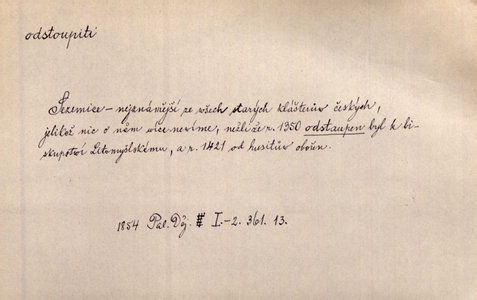 odstoupiti
Sezemice – nejznámější ze všech starých klášterův českých,
jelikož nic o něm více nevíme, nežli že r. 1350 odstaupen byl k bi-
skupství Litomyšlskému, a r. 1421 od husitův obořen.
1854 Pal. Děj. I.-2. 361. 13.